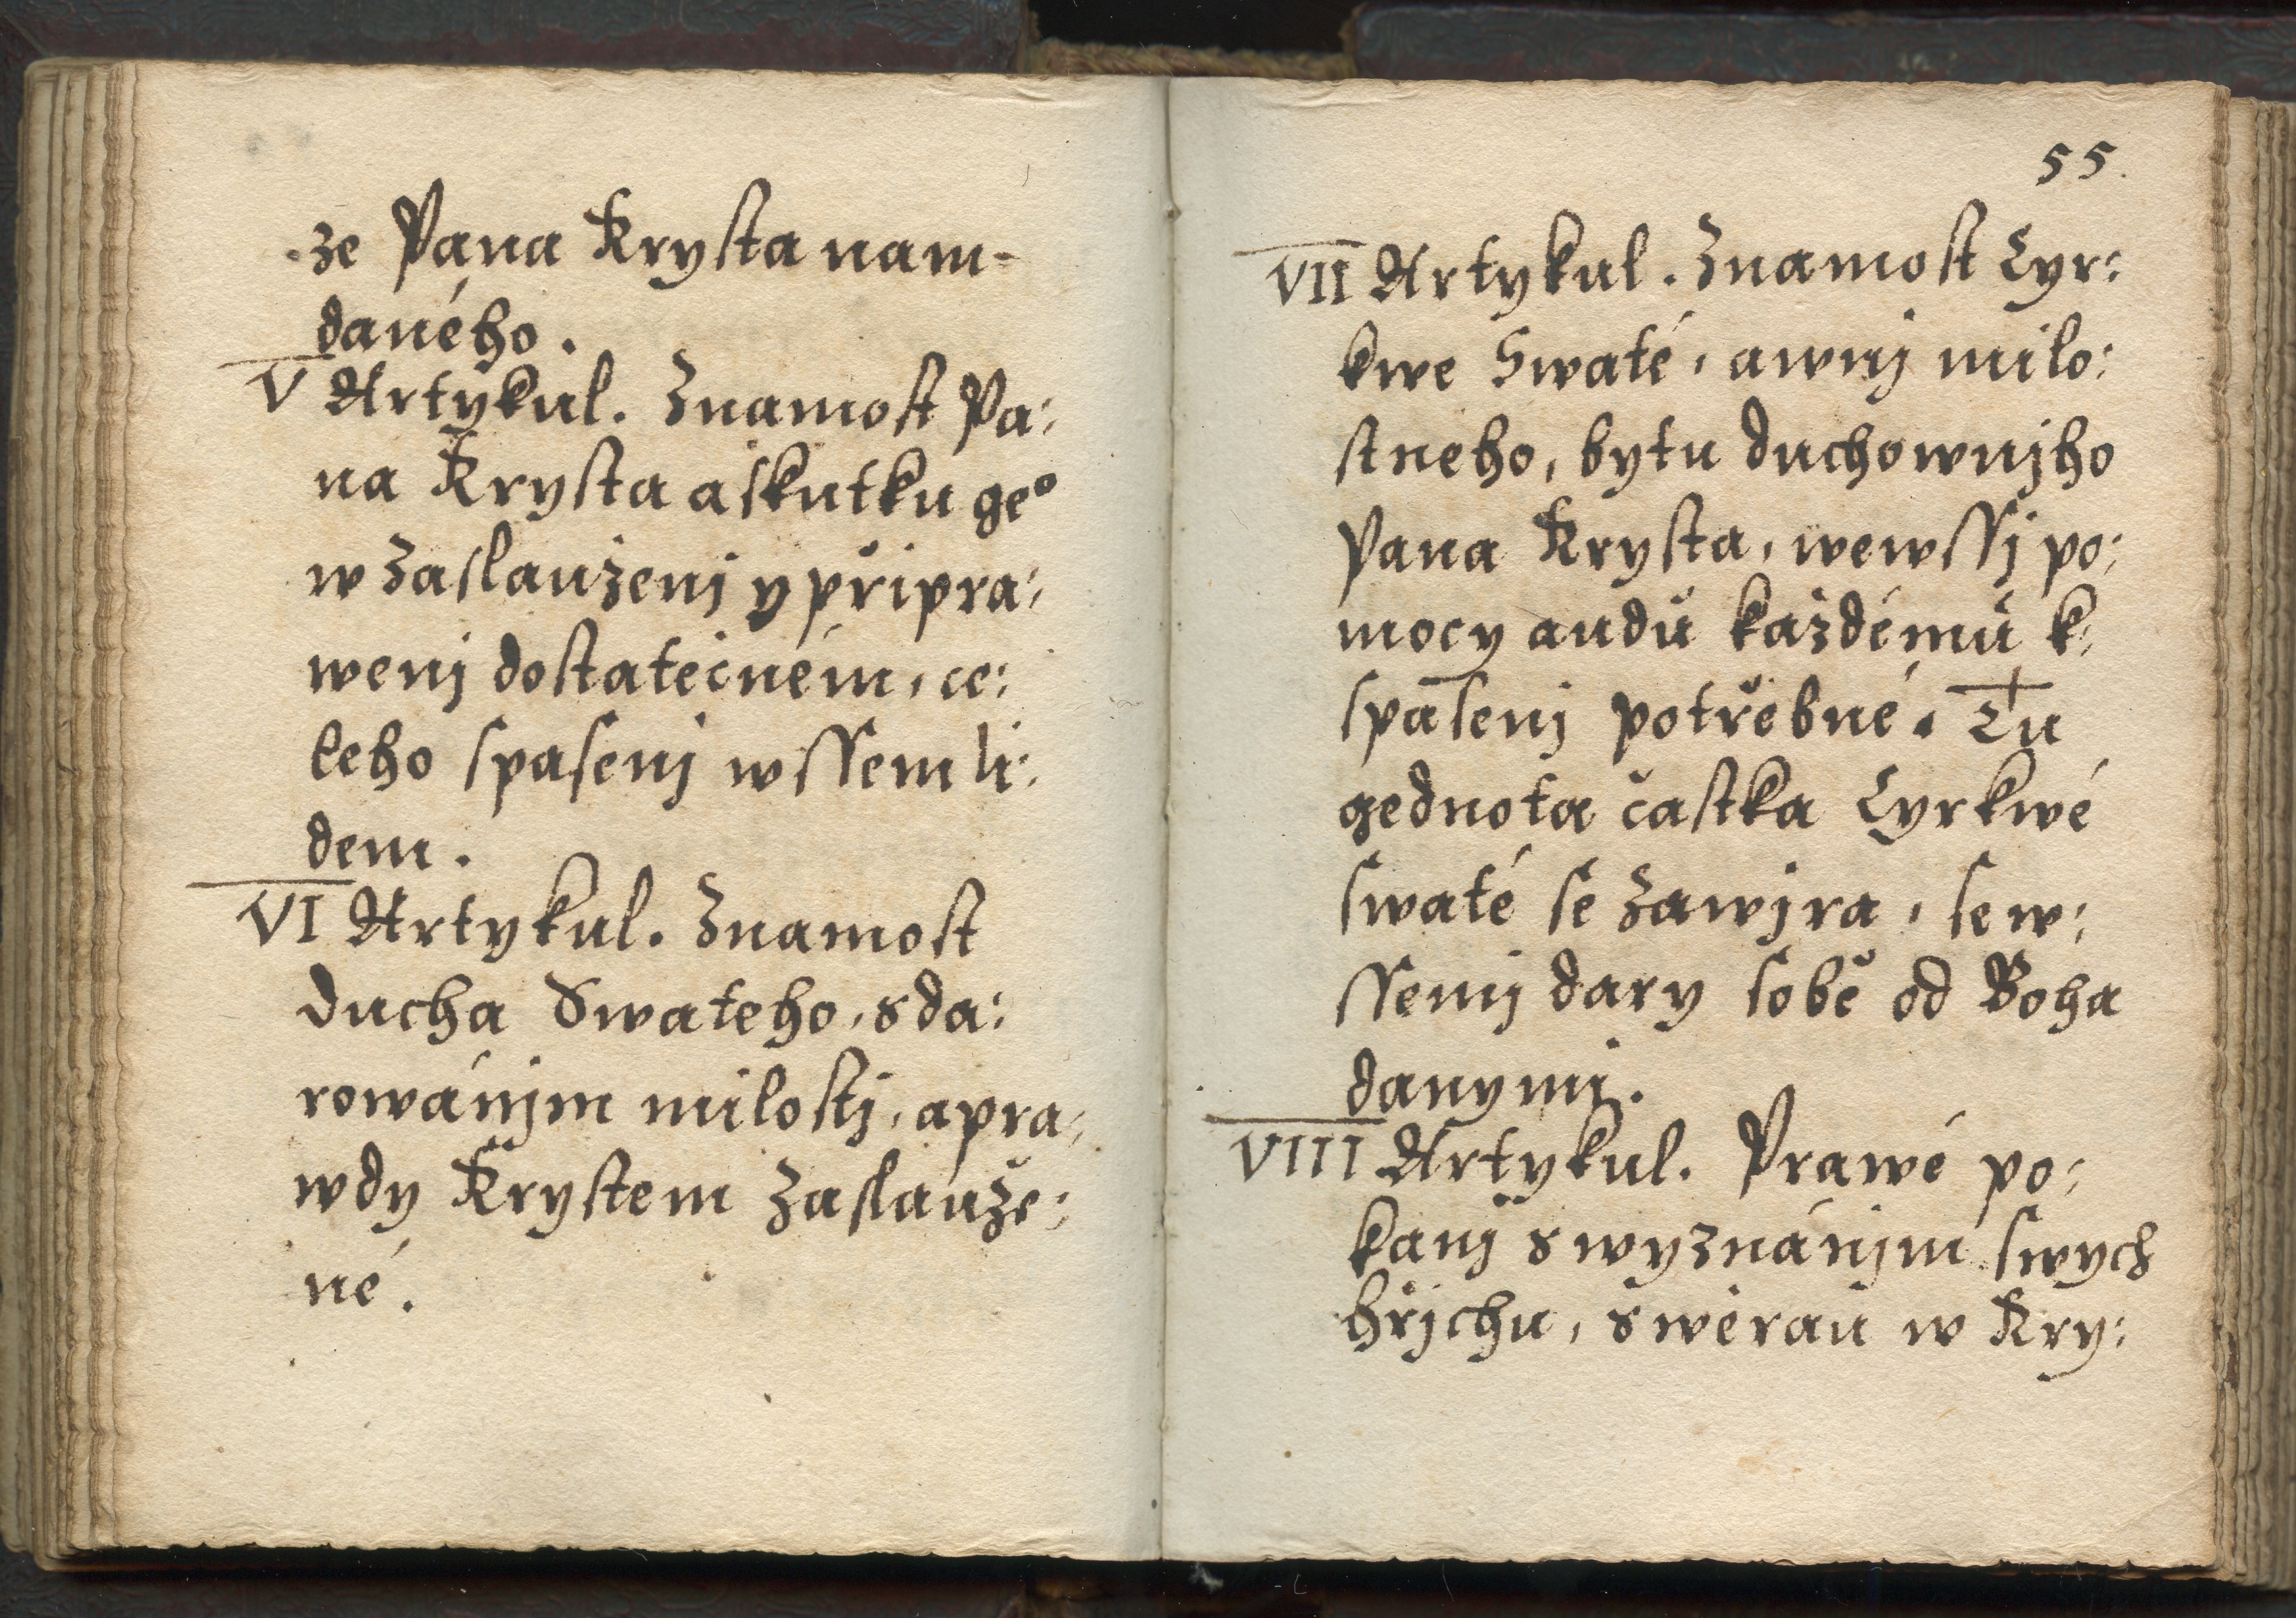 ze Pana Krysta nam-
daného.
V Artykul. Znamost Pa:
na Krysta a skutku geº
w zaslauženj y připra:
wenj dostatečném, ce:
leho spasenj wssem li:
dem.
VI Artykul. Znamost
Ducha Swateho, s da:
rowánjm milosti, a pra:
wdy Krystem zaslauže:
né.
55.
VII Artykul. Znamost Cyr:
kwe Swaté, a wnj milo:
stneho, bytu duchownjho
Pana Krysta, wewssj po:
mocy audů každémů k:
spasenj potřebné. Tu
gednota častka Cyrkwé
swaté se zawjra, se w:
ssemi dary sobě od Boha
danymi.
VIII Artykul. Prawé po:
kanj s wyznánjm swych
hřjchu, s wěrau w Kry: